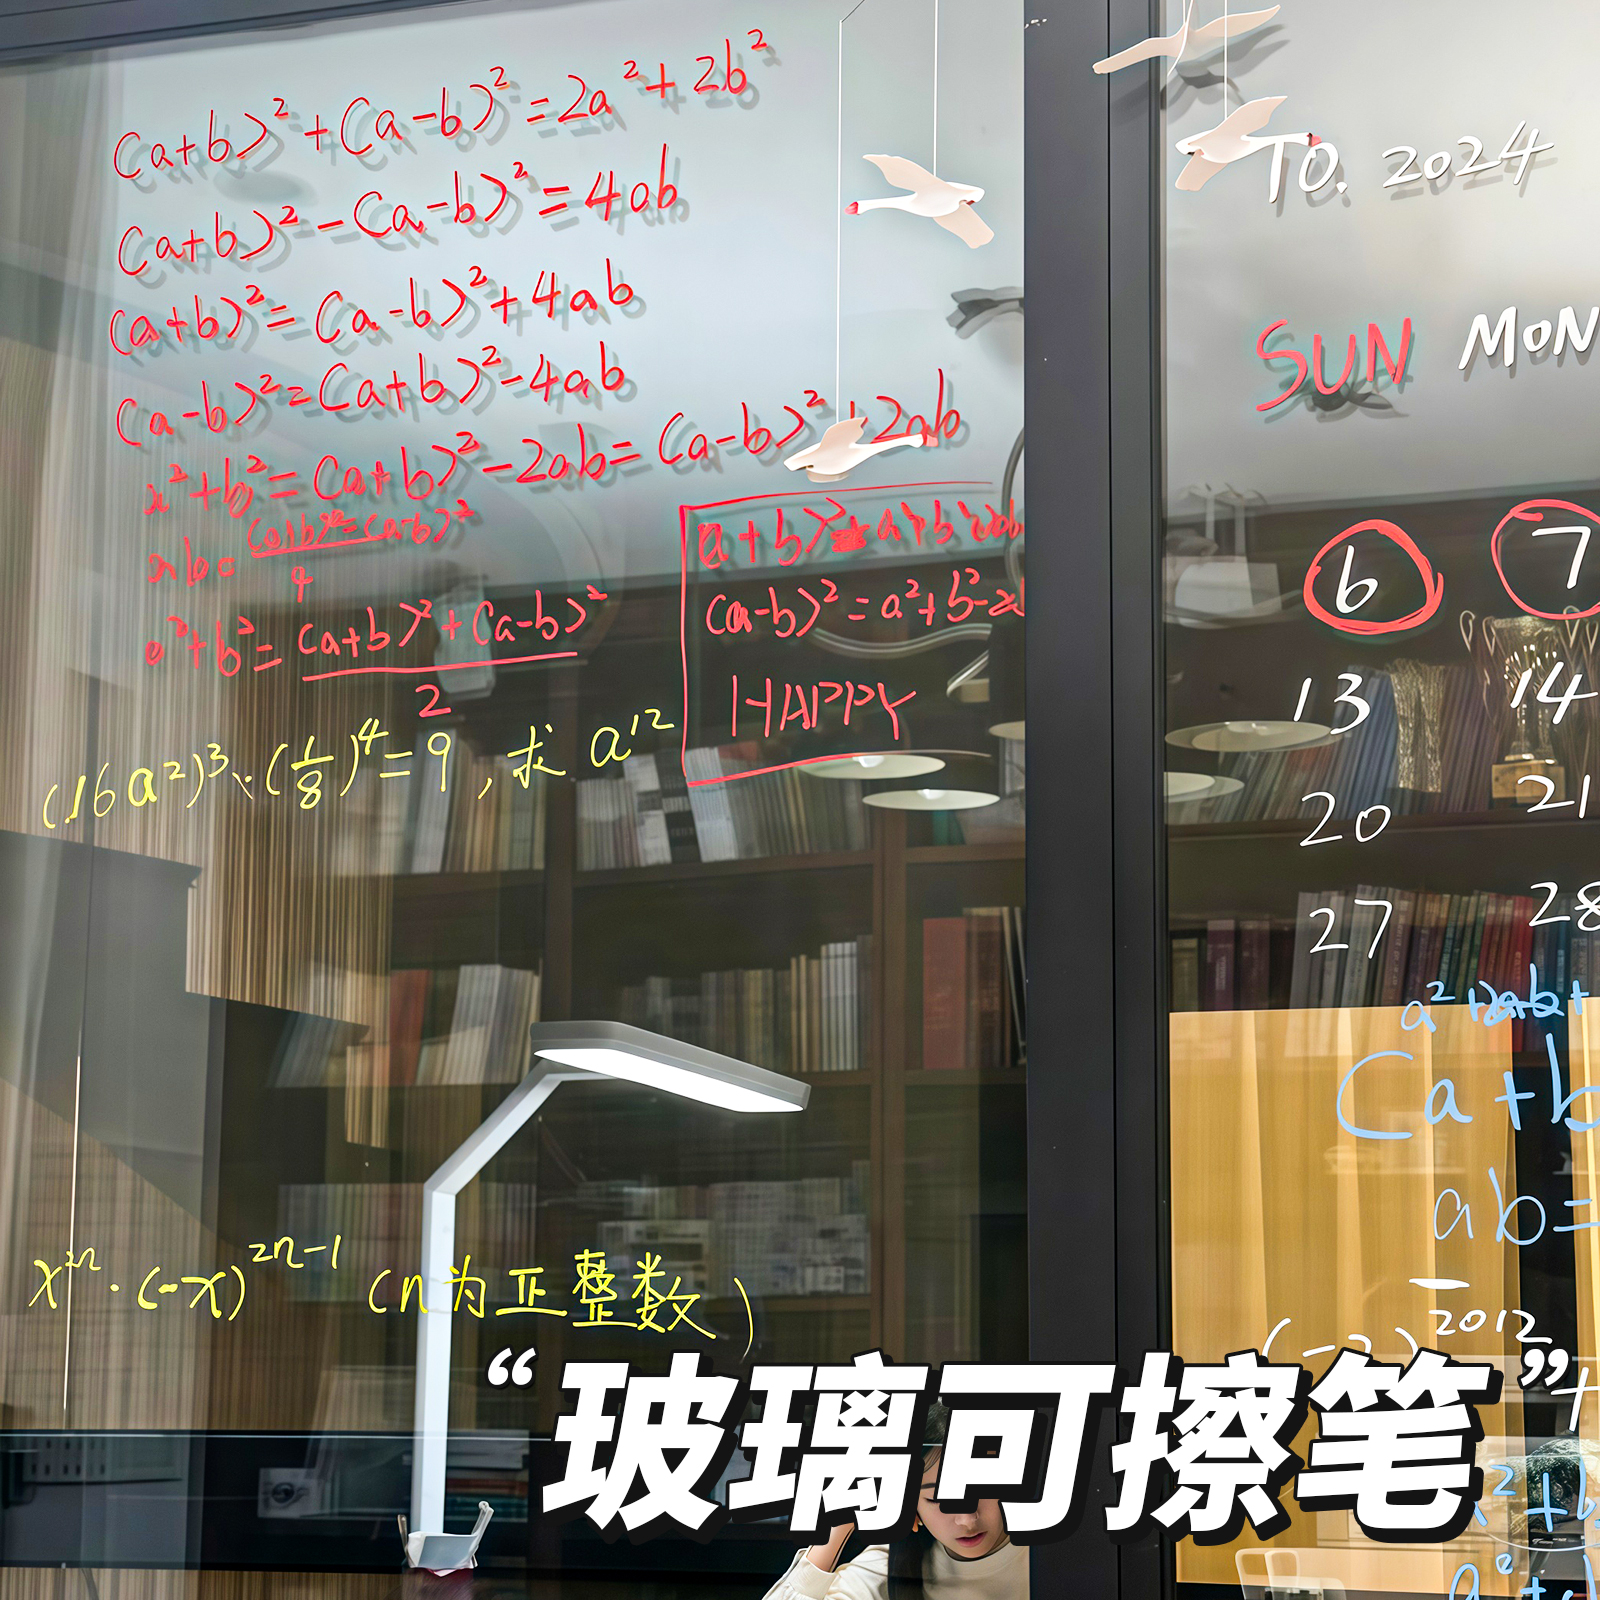 (a+b)²+(a-b)²=2a²+2b²
(a+b)²-(a-b)²=4ab
(a+b)²=(a-b)²+4ab
(a-b)²=(a+b)²-4ab
x²+b²=(a+b)²-2ab=(a-b)²+2ab
ab=(a+b)²-(a-b)²/4
a²+b²=(a+b)²+(a-b)²/2
(a-b)²=a²+b²-2
HAPPY
(16a²)³·(1/8)⁴=9,求a¹²
·(-x)²ⁿ⁻¹(n为正整数)
TO. 2024
SUN MON
6 7
13 14
20 21
27 28
(a+b
ab=
2012
a²+
“玻璃可擦笔”